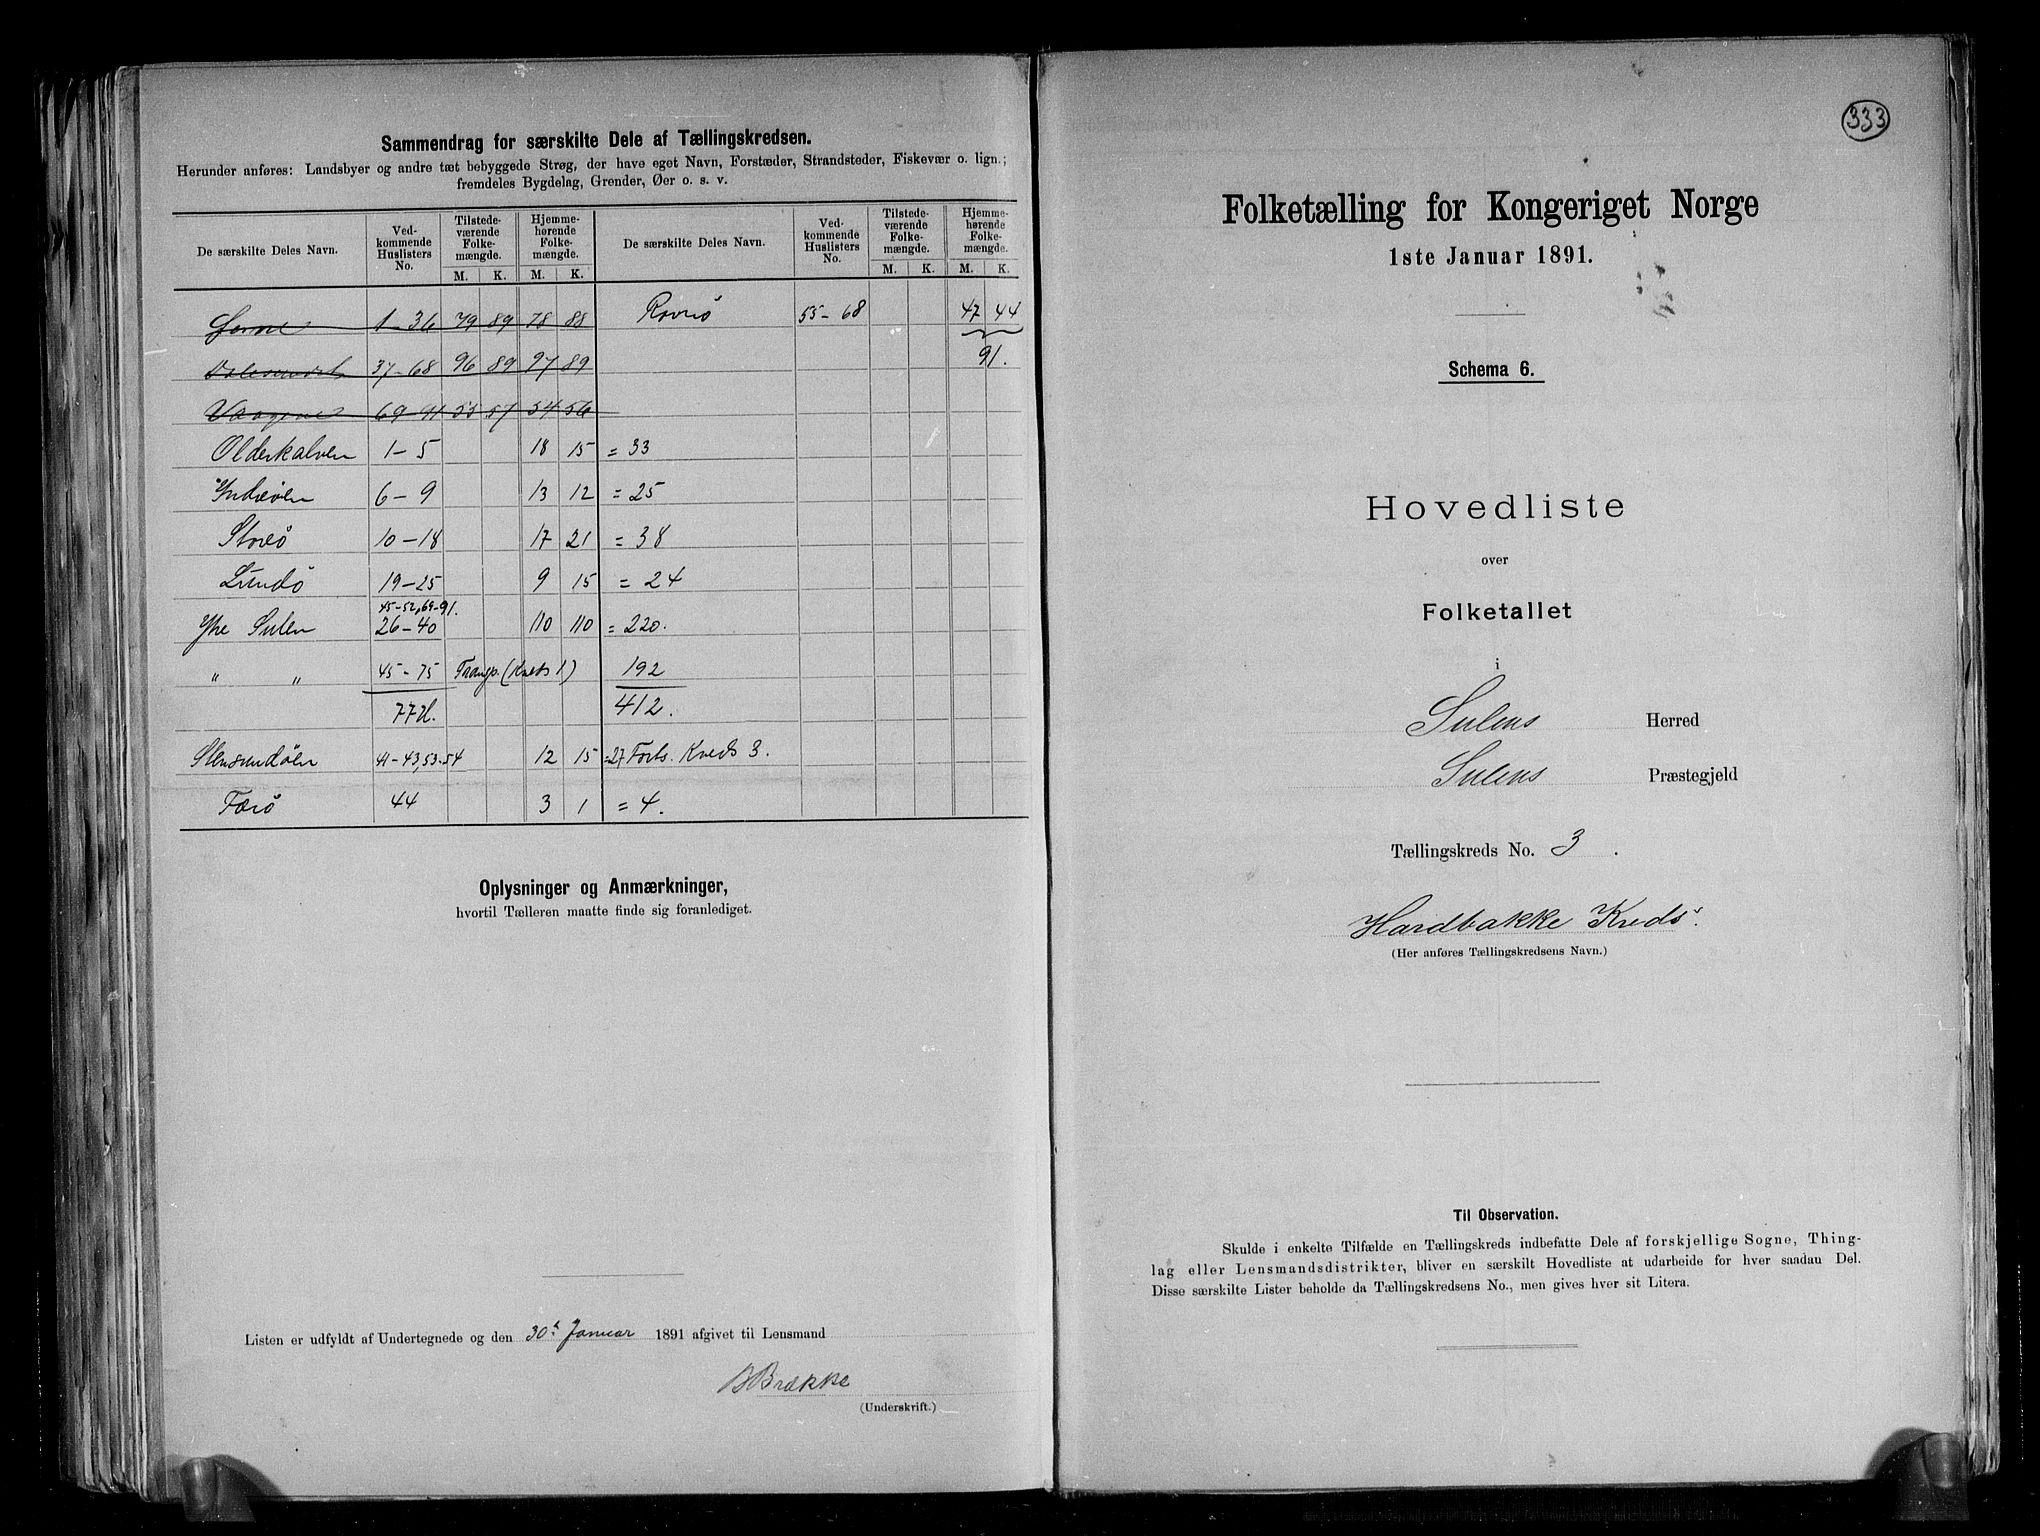 Sammendrag for særskilte Dele af Tællingskredsen.
Herunder anføres: Landsbyer og andre tæt bebyggede Strøg, der have eget Navn, Forstæder, Strandsteder, Fiskevær o. lign.;
fremdeles Bygdelag, Grender, Øer o. s. v.
De særskilte Deles Navn. Ved-kommende Huslisters No. Tilstede-værende Folke-mængde. Hjemme-hørende Folke-mængde. De særskilte Deles Navn. Ved-kommende Huslisters No. Tilstede-værende Folke-mængde. Hjemme-hørende Folke-mængde.
M. K. M. K. M. K. M. K.
1-36 79 89 78 88 55-68 47 44
37-68 96 89 97 89 91.
Vaagene 69-91 55 57 54 56
Olderkalven 1-5 18 15 = 33
6-9 13 12 = 25
Storø 10-18 17 21 = 38
Lundø 19-25 9 15 = 24
45-52, 69-91.
Ytre Sulen 26-40 110 110 = 220.
" " 45-75 Transp. (Kreds 1) 192
77 H. 412.
Stensundøen 41-43, 53-54 12 15 = 27 Forts. Kreds 3.
Færø 44 3 1 = 4.
Oplysninger og Anmærkninger,
hvortil Tælleren maatte finde sig foranlediget.
Listen er udfyldt af Undertegnede og den 30t Januar 1891 afgivet til Lensmand
B Brække
(Underskrift.)
333
Folketælling for Kongeriget Norge
1ste Januar 1891.
Schema 6.
Hovedliste
over
Folketallet
i
Sulens Herred
Sulens Præstegjeld
Tællingskreds No. 3.
Hardbakke Kreds.
(Her anføres Tællingskredsens Navn.)
Til Observation.
Skulde i enkelte Tilfælde en Tællingskreds indbefatte Dele af forskjellige Sogne, Thing-
lag eller Lensmandsdistrikter, bliver en særskilt Hovedliste at udarbeide for hver saadan Del.
Disse særskilte Lister beholde da Tællingskredsens No., men gives hver sit Litera.